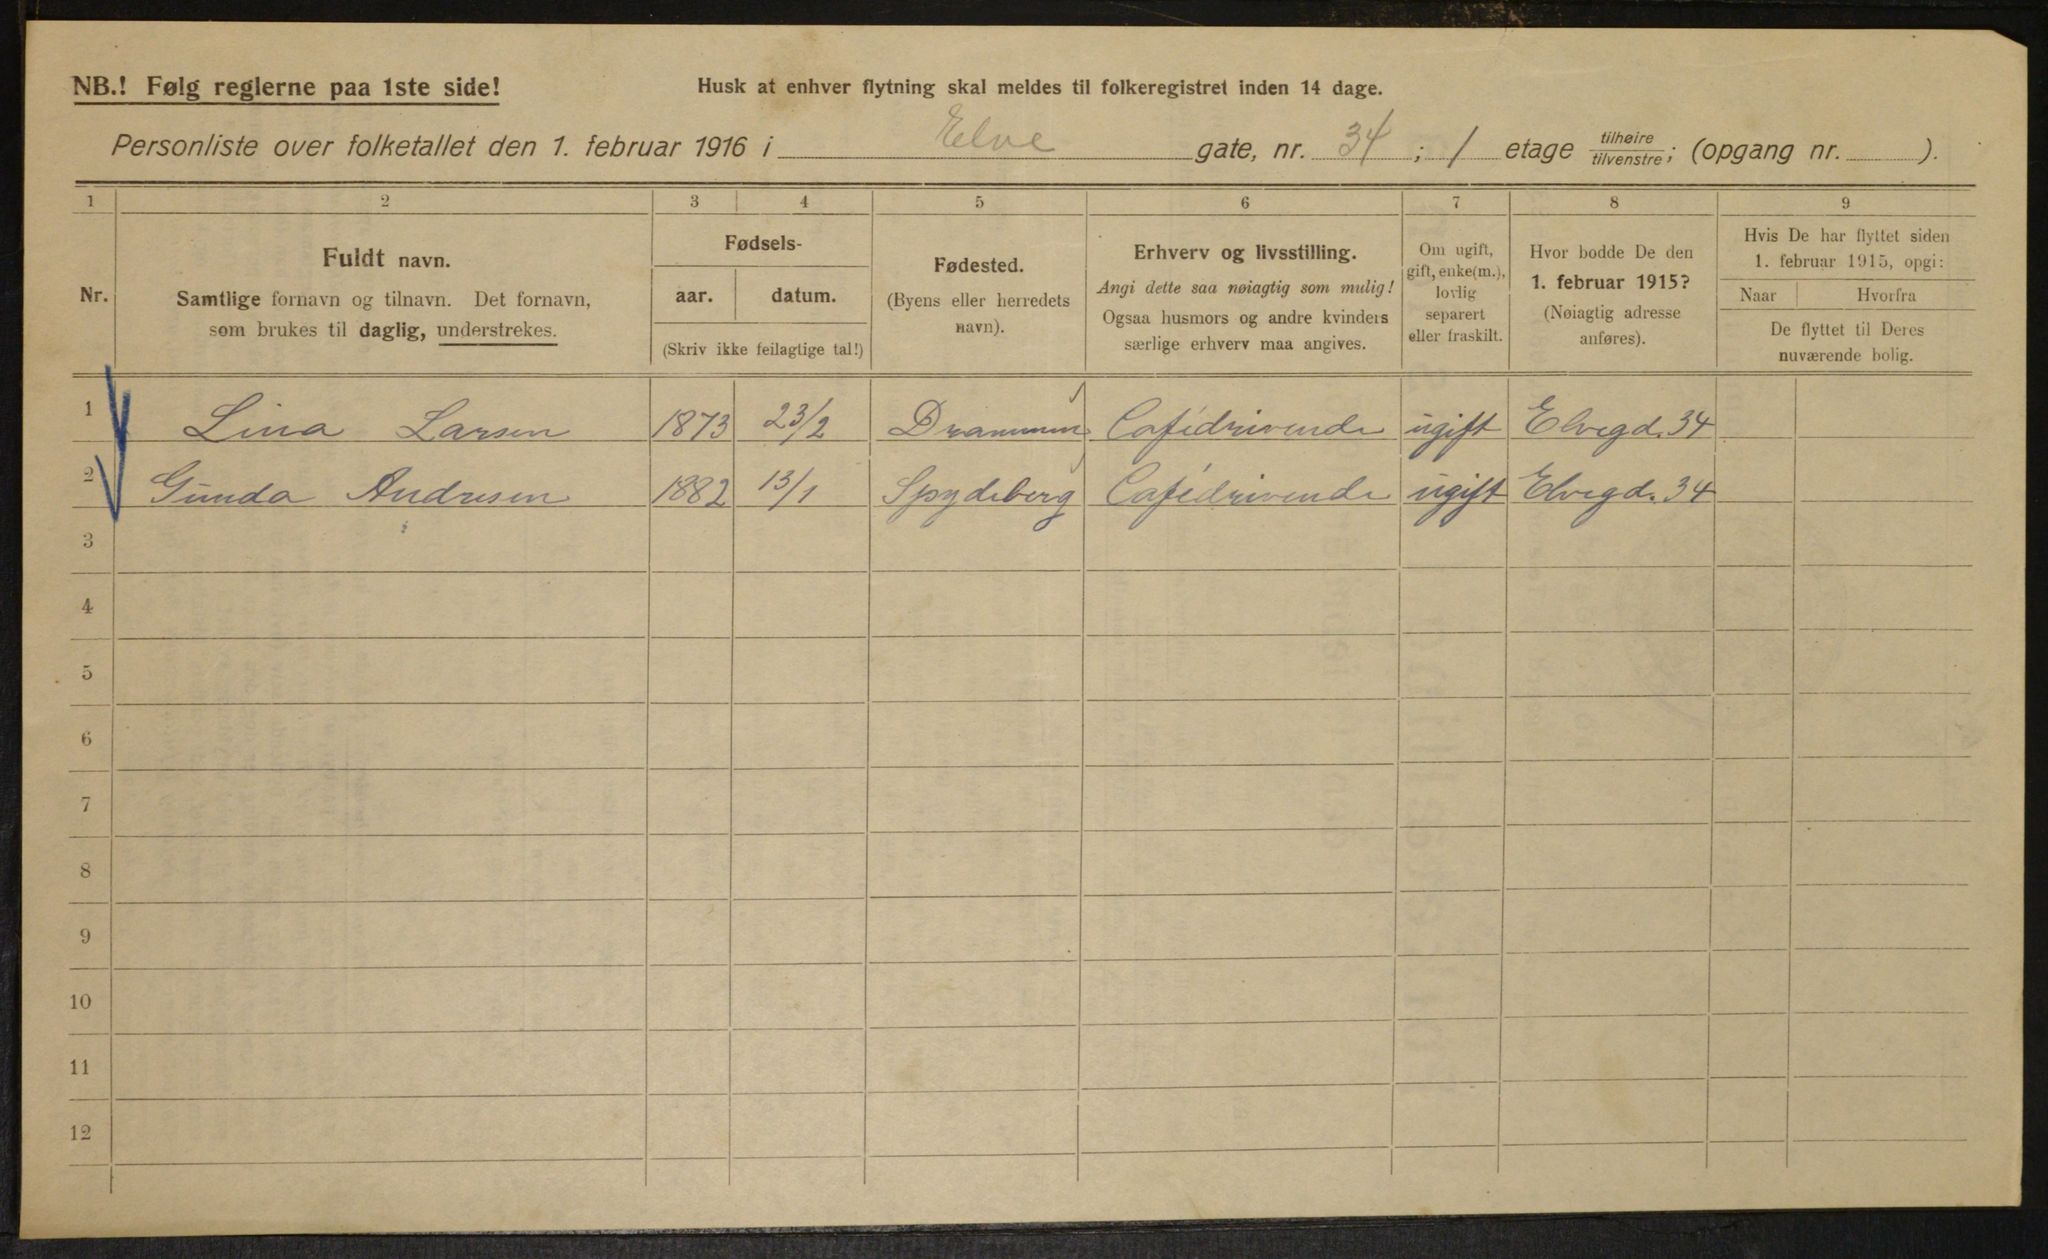 NB.! Følg reglerne paa 1ste side!
Husk at enhver flytning skal meldes til folkeregistret inden 14 dage.
Personliste over folketallet den 1. februar 1916 i Elve gate, nr. 34 ; 1 etage tilhøire tilvenstre ; (opgang nr. ).
1 2 3 4 5 6 7 8 9
Nr.
Fuldt navn.
Samtlige fornavn og tilnavn. Det fornavn,
som brukes til daglig, understrekes.
Fødsels-
aar. datum.
(Skriv ikke feilagtige tal!)
Fødested.
(Byens eller herredets
navn).
Erhverv og livsstilling.
Angi dette saa nøiagtig som mulig!
Ogsaa husmors og andre kvinders
særlige erhverv maa angives.
Om ugift,
gift, enke(m.),
lovlig
separert
eller fraskilt.
Hvor bodde De den
1. februar 1915?
(Nøiagtig adresse
anføres).
Hvis De har flyttet siden
1. februar 1915, opgi:
Naar Hvorfra
De flyttet til Deres
nuværende bolig.
1 Lina Larsen 1873 23/2 Drammen Cafédrivende ugift Elvegd. 34
2 Gunda Andresen 1882 13/1 Spydeberg Cafédrivende ugift Elvegd. 34
3
4
5
6
7
8
9
10
11
12